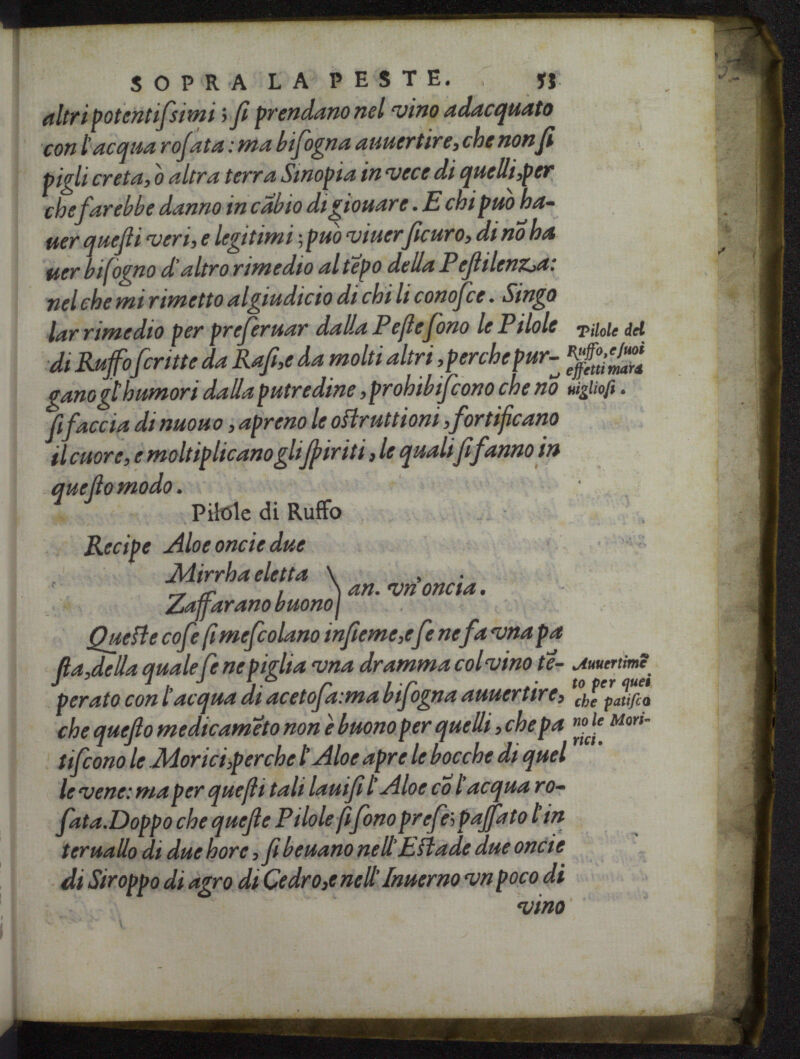 SOPRA LA PESTE. 53
altri potentiſsimi; ſi prendano nel vino adacquato
con l'acqua roſata: ma biſogna auuertire, che non ſi
pigli creta, ò altra terra Sinopia in vece di quelli, per
che farebbe danno in cãbio di giouare. E chi può ha-
uer queſti veri, e legitimi; può viuer ſicuro, di nõ ha
uer biſogno d'altro rimedio al tẽpo della Peſtilenza:
nel che mi rimetto al giudicio di chi li conoſce. Singo
lar rimedio per preſeruar dalla Peſte ſono le Pilole
di Ruffo ſcritte da Raſi, e da molti altri, perche pur-
gano gl'humori dalla putredine, prohibiſcono che nõ
ſi faccia di nuouo, apreno le oſtruttioni, fortificano
il cuore, e moltiplicano gli ſpiriti, le quali ſi fanno in
queſto modo.
Pilole del
Ruffo, e ſuoi
effetti mara
uiglioſi.
Pilole di Ruffo
Recipe Aloe oncie due
Mirrha eletta
Zaffarano buono } an. vn'oncia.
Queſte coſe ſi meſcolano inſieme, e ſe ne fa vna pa
ſta, della quale ſe ne piglia vna dramma col vino tẽ-
perato con l'acqua di acetoſa: ma biſogna auuertire,
che queſto medicamẽto non è buono per quelli, che pa
tiſcono le Morici, perche l'Aloe apre le bocche di quel
le vene: ma per queſti tali lauiſi l'Aloe cõ l'acqua ro-
ſata. Doppo che queſte Pilole ſi ſono preſe; paſſato l'in
teruallo di due hore, ſi beuano nell'Eſtade due oncie
di Siroppo di agro di Cedro, e nell'Inuerno vn poco di
Auuertimẽ
to per quei
che patiſco
no le Mori-
rici.
vino